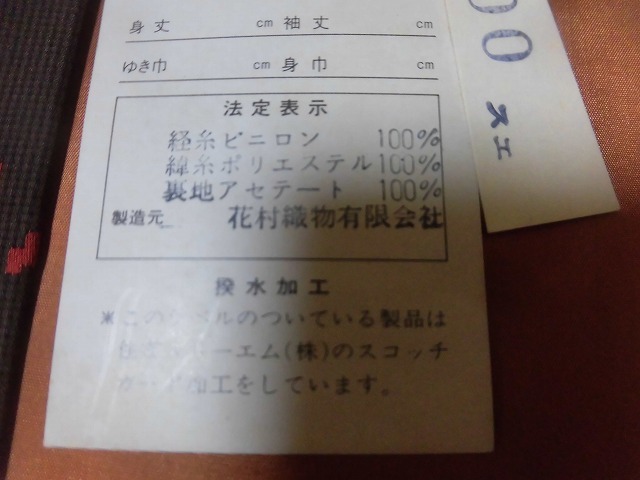 身丈 cm 袖丈 cm
ゆき巾 cm 身巾 cm
法定表示
経糸ビニロン 100%
緯糸ポリエステル 100%
裏地アセテート 100%
製造元 花村織物有限会社
撥水加工
※このラベルのついている製品は
エム(株)のスコッチ
加工をしています。
00
スエ